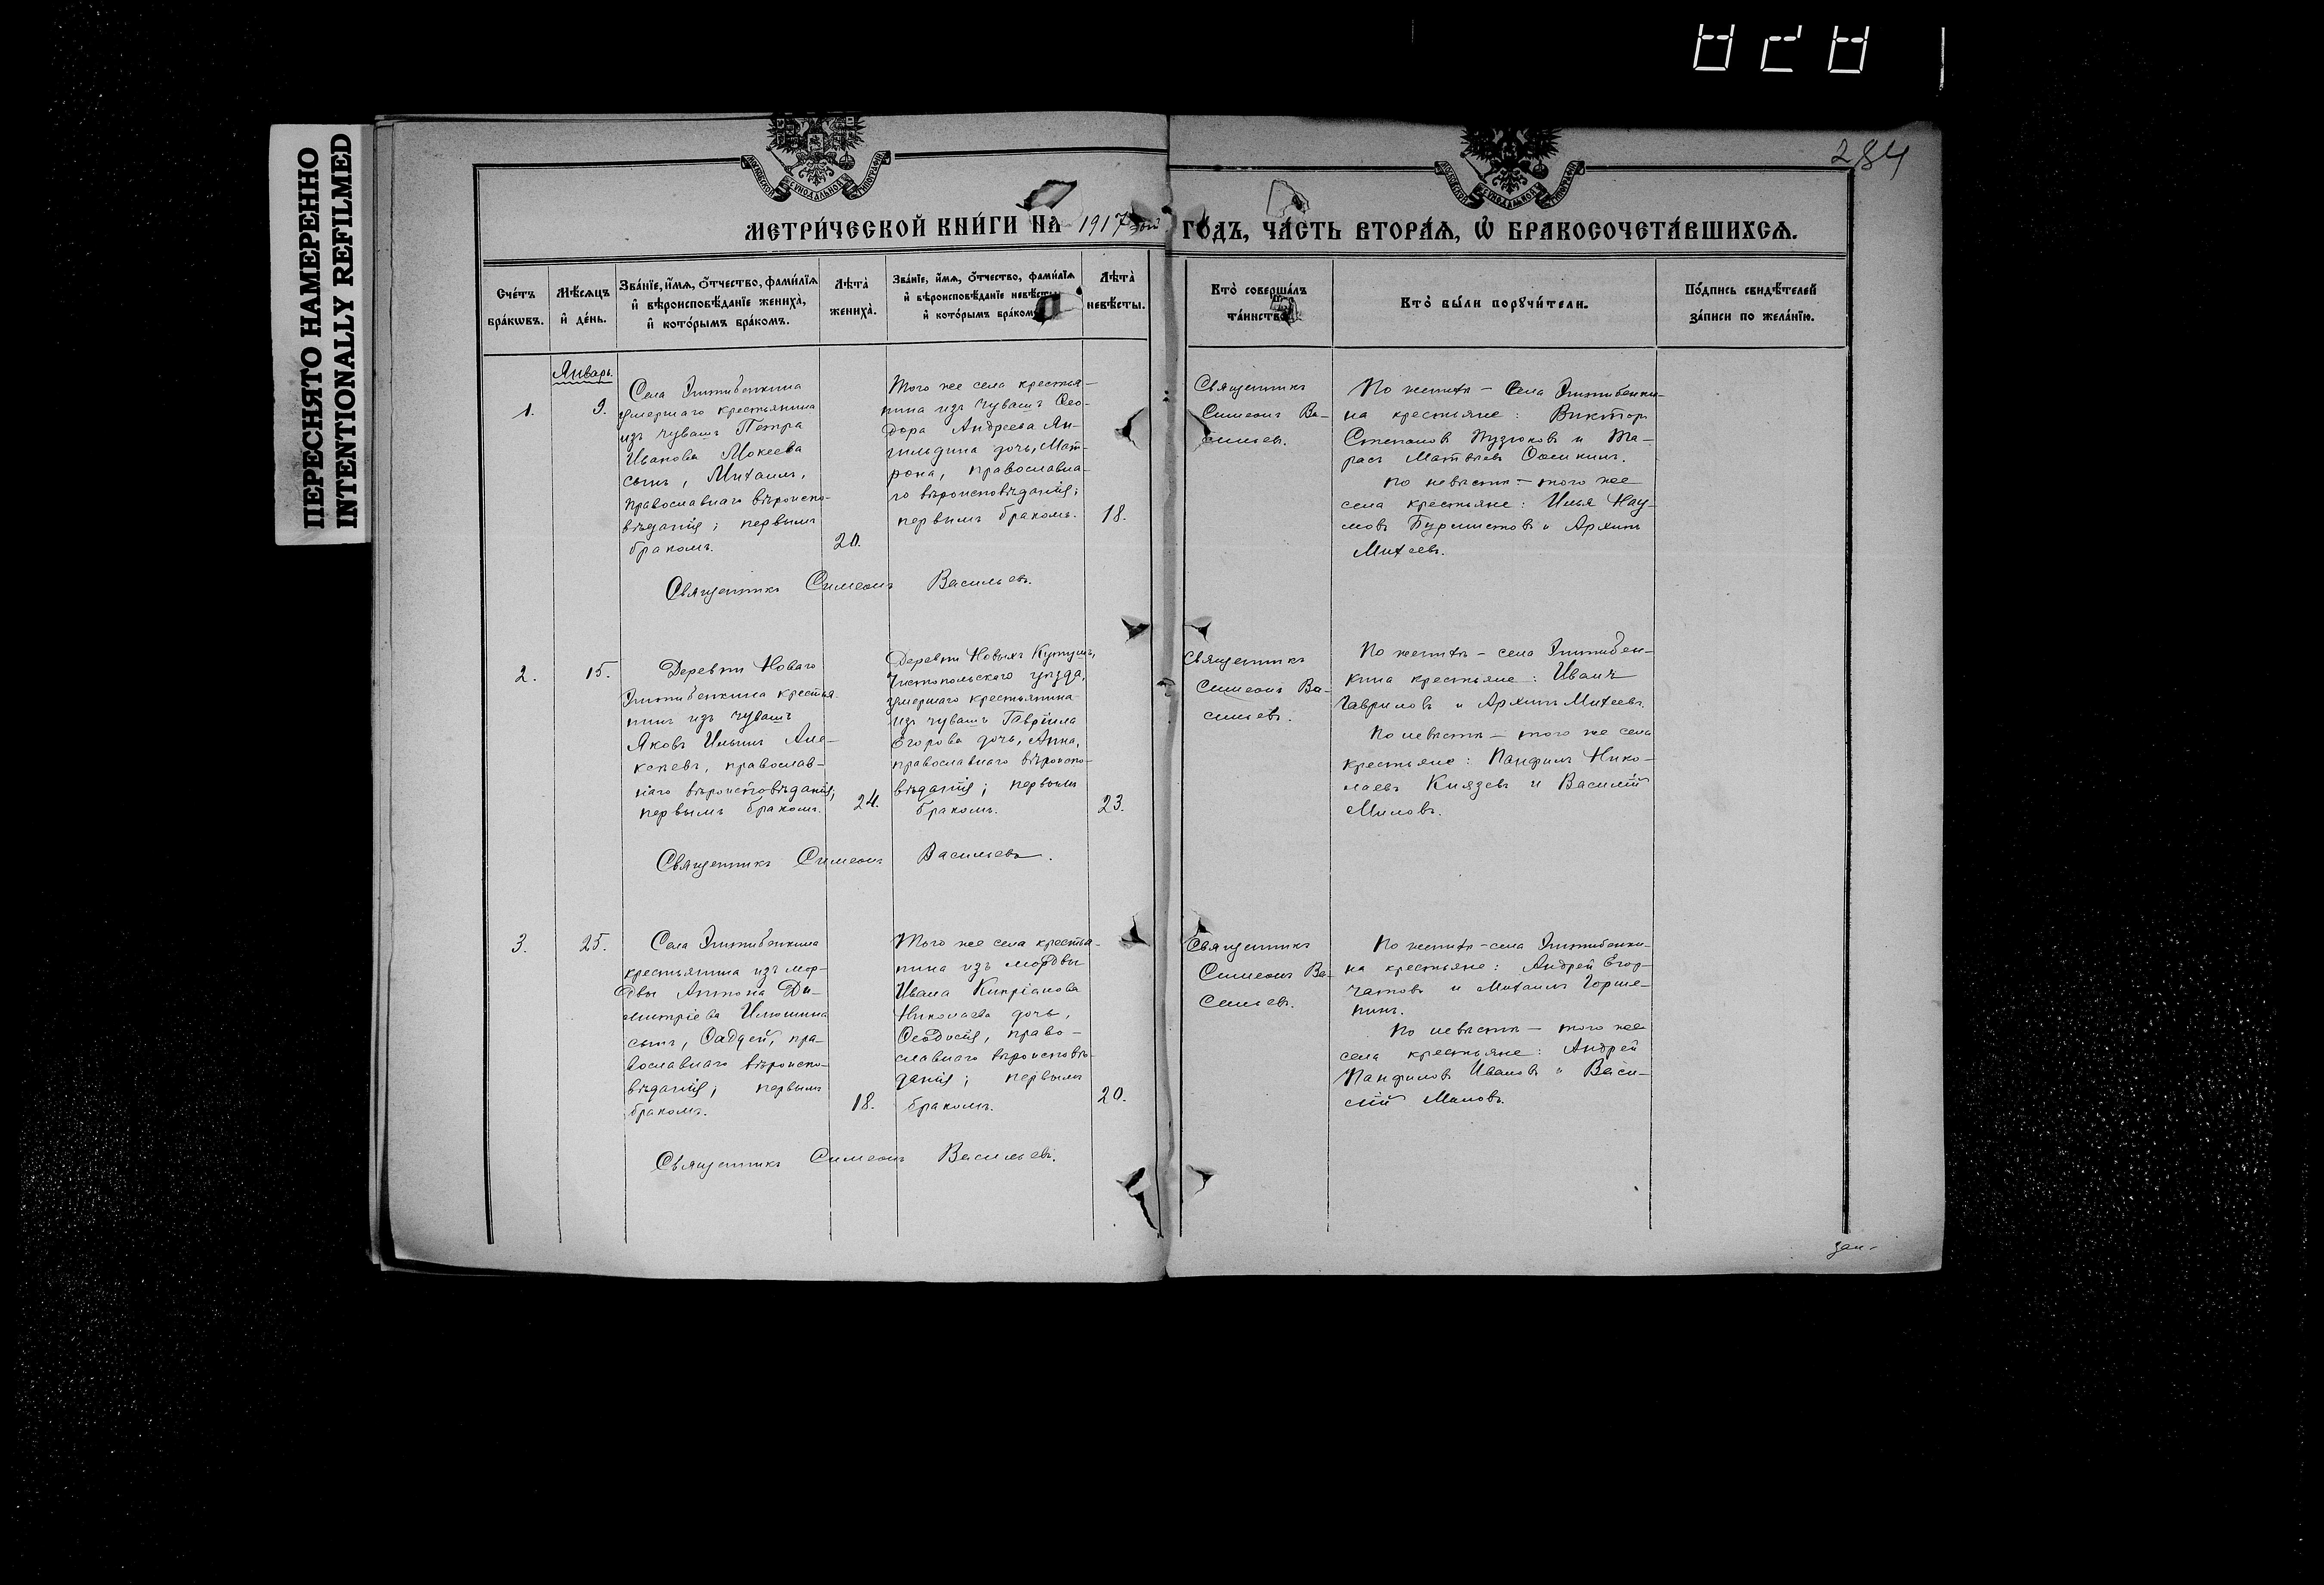 ПЕРЕСНЯТО НАМЕРЕННО
INTENTIONALLY REFILMED
284
МОСКОВСКОЙ СѴНОДАЛЬНОЙ ТИПОГРАФІИ
МОСКОВСКОЙ СѴНОДАЛЬНОЙ ТИПОГРАФІИ
МЕТРИ́ЧЕСКОЙ КНИ́ГИ НА 1917 го́дъ, ча́сть втора́ѧ, ѡ҆ бракосочета́вшихсѧ.
Сче́тъ бра́кѡвъ.
Мѣ́сѧцъ и҆ де́нь.
Зва́нїе, и҆́мѧ, ѻ҆́тчество, фами́лїѧ
и҆ вѣроисповѣ́данїе жениха̀,
и҆ кото́рымъ бра́комъ.
Лѣта̀ жениха̀.
Зва́нїе, и҆́мѧ, ѻ҆́тчество, фами́лїѧ
и҆ вѣроисповѣ́данїе невѣ́сты
и҆ кото́рымъ бра́комъ
Лѣта̀ невѣ́сты.
Кто̀ соверша́лъ та́инство
Кто̀ бы́ли порꙋчи́тели.
По́дпись свидѣ́телей
за́писи по жела́нїю.
Январь.
1.
9.
Села
умершаго крестьянина
изъ чувашъ Петра
Иванова Мокеева
сынъ, Михаилъ,
православнаго вѣроиспо-
вѣданія; первымъ
бракомъ.
20.
Того же села крестья-
нина изъ чувашъ Ѳео-
дора Андреева Ан-
дочь, Мат-
рона, православна-
го вѣроисповѣданія;
первымъ бракомъ.
18.
Священникъ
Симеонъ Ва-
сильевъ.
По женихѣ – Села
на крестьяне: Викторъ
Степановъ и Та-
расъ Матвѣевъ
По невѣстѣ – того же
села крестьяне: Илья Нау-
мовъ и Архипъ
Михеевъ.
Священникъ Симеонъ Васильевъ.
2.
15.
Деревни Новаго
крестья-
нинъ изъ чувашъ
Яковъ Ильинъ Але-
ксѣевъ, православ-
наго вѣроисповѣданія,
первымъ бракомъ.
24.
Деревни Новыхъ
Чистопольского уѣзда,
умершаго крестьянина
изъ чувашъ Гавріила
Егорова дочь, Анна,
православнаго вѣроиспо-
вѣданія; первымъ
бракомъ.
23.
Священникъ
Симеонъ Ва-
сильевъ.
По женихѣ – села
кина крестьяне: Иванъ
Гавриловъ и Архипъ Михеевъ.
По невѣстѣ – того же села
крестьяне: Панфилъ Нико-
лаевъ Князевъ и Василій
Миловъ.
Священникъ Симеонъ Васильевъ.
3.
25.
Села
крестьянина изъ мор-
двы Антона Ди-
митріева Илюшина
сынъ, Ѳаддей, пра-
вославнаго вѣроиспо-
вѣданія; первымъ
бракомъ.
18.
Того же села крестья-
нина изъ мордвы
Ивана Кипріанова
Николаева дочь,
Ѳеодосія, право-
славнаго вѣроисповѣ-
данія; первымъ
бракомъ.
20.
Священникъ
Симеонъ Ва-
сильевъ.
По женихѣ – села
на крестьяне: Андрей Егор-
и Михаилъ Горше-
нинъ.
По невѣстѣ – того же
села крестьяне: Андрей
Панфиловъ Ивановъ и Васи-
лій Миловъ.
Священникъ Симеонъ Васильевъ.